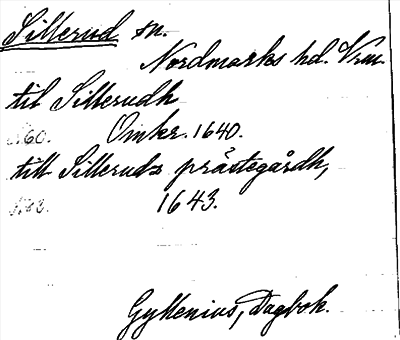 Sillerud sn.
Nordmarks hd. Vrm.
til Sillerudh
s. 60. Omkr. 1640.
till Silleruds prästegårdh,
s. 83. 1643.
Gyllenius, Dagbok.